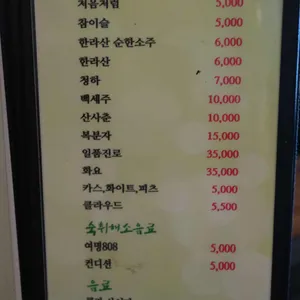 처음처럼 5,000
참이슬 5,000
한라산 순한소주 6,000
한라산 6,000
청하 7,000
백세주 10,000
산사춘 10,000
복분자 15,000
일품진로 35,000
화요 35,000
카스,화이트,피츠 5,000
클라우드 5,500
숙취해소음료
여명808 5,000
컨디션 5,000
음료